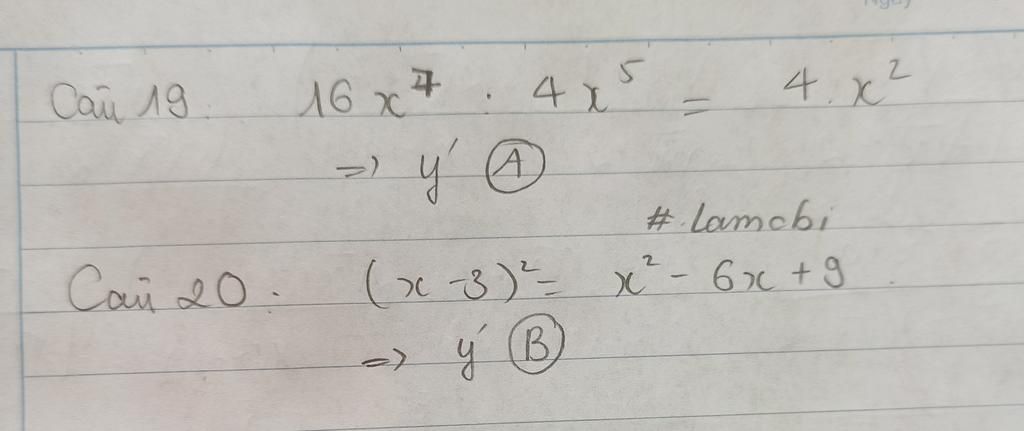 Câu 19. 16x⁷ . 4x⁵ = 4.x²
=> ý Ⓐ
#.Lamobi
Câu 20. (x-3)² = x² - 6x + 9.
=> ý Ⓑ